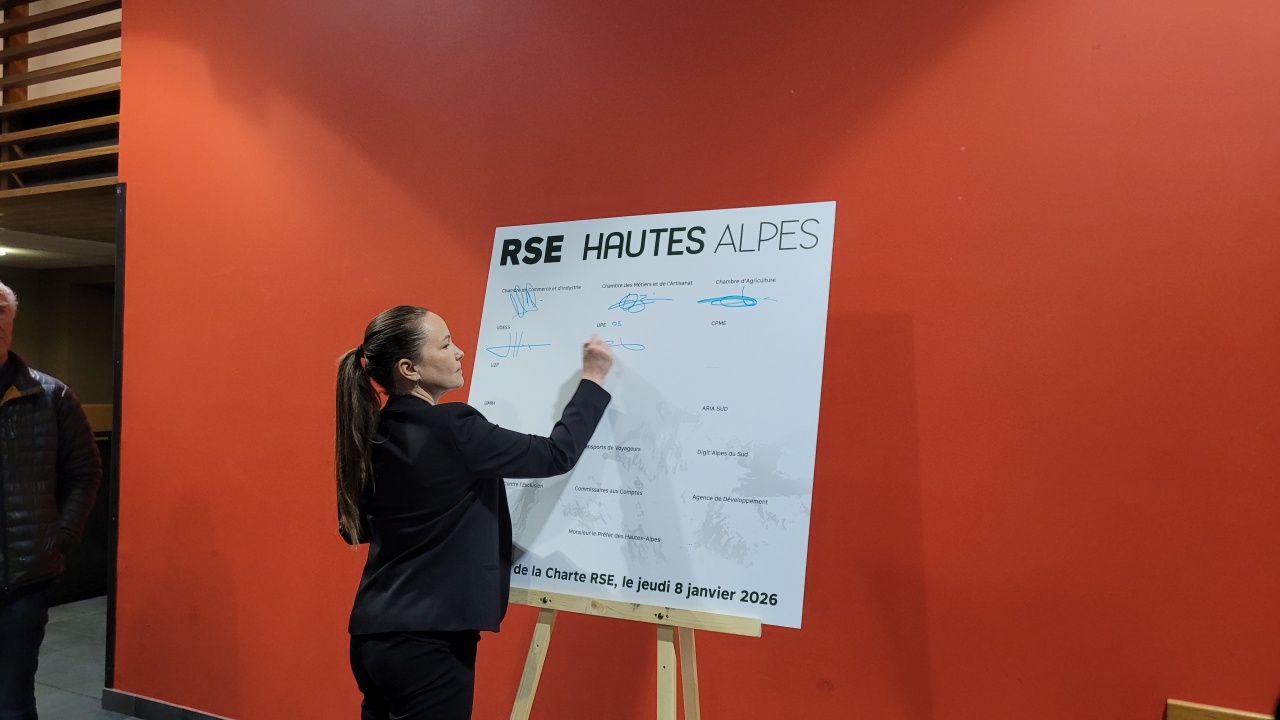 RSE HAUTES ALPES
Chambre de Commerce et d'Industrie Chambre des Métiers et de l'Artisanat Chambre d'Agriculture
UDESS UPE 05 CPME
U2P
UMIH ARIA SUD
de Voyageurs Digit'Alpes du Sud
Contre l'Exclusion Commissaires aux Comptes Agence de Développement
Monsieur le Préfet des Hautes-Alpes
de la Charte RSE, le jeudi 8 janvier 2026